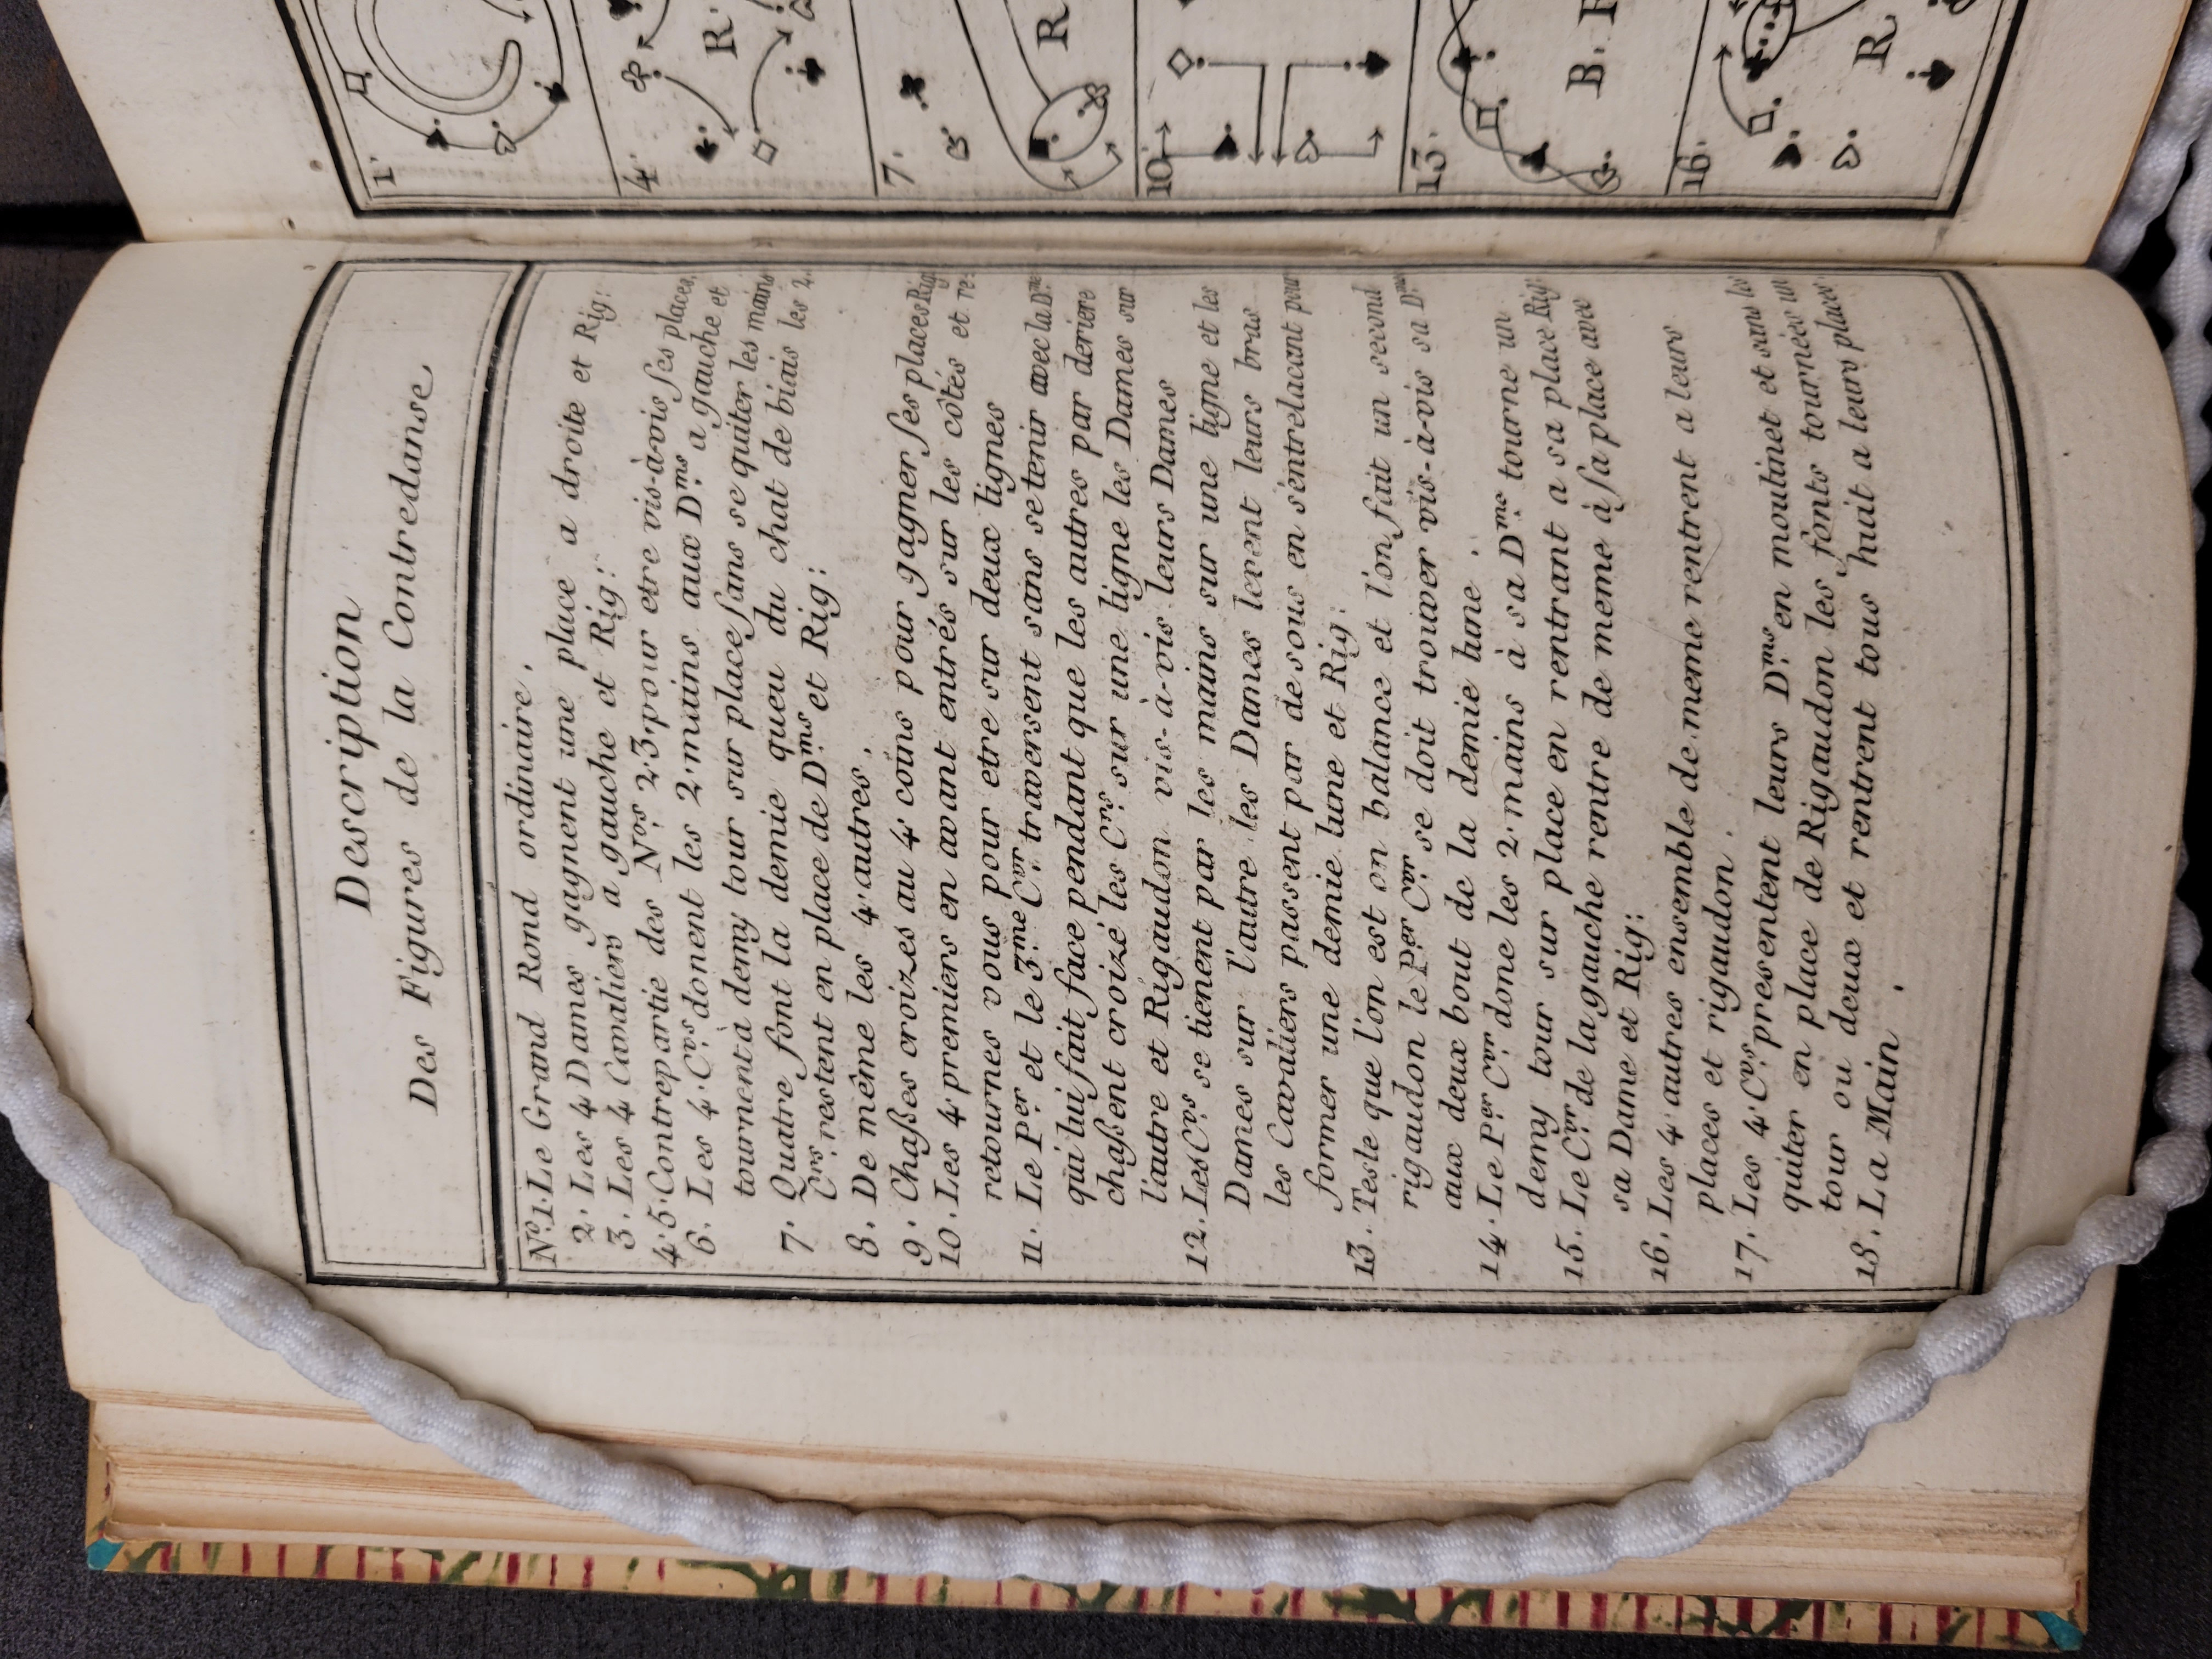 Description
Des Figures de la Contredanse
Nº.1. Le Grand Rond ordinaire.
2. Les 4 Dames gagnent une place a droite et Rig:
3. Les 4 Cavaliers a gauche et Rig:
4.5. Contrepartie des Nos. 2.3. pour etre vis-à-vis ses places.
6. Les 4. Crs. donent les 2. mains aux Dms. a gauche et
tournent à demy tour sur place sans se quiter les mains
7. Quatre font la demie queu du chat de biais les 2.
Crs. restent en place de Dms. et Rig:
8. De même les 4. autres.
9. Chaßes croizes au 4. coins pour gagner ses places Rig:
10. Les 4. premiers en avant entrés sur les côtés et re:
retournes vous pour etre sur deux lignes
11. Le Per. et le 3.me Cer. traversent sans se tenir avec la Dme.
qui lui fait face pendant que les autres par deriere
chaßent croizé les Crs. sur une ligne les Dames sur
l'autre et Rigaudon vis-à-vis leurs Dames
12. Les Crs. se tienent par les mains sur une ligne et les
Dames sur l'autre les Dames levent leurs bras
les Cavaliers passent par desous en s'entrelacant pour
former une demie lune et Rig:
13. Tesle que l'on est on balance et l'on fait un second
rigaudon le Per. Cer. se doit trouver vis-à-vis sa Dme.
aux deux bout de la demie lune.
14. Le Per. Cer. done les 2. mains à sa Dme. tourne un
demy tour sur place en rentrant a sa place Rig:
15. Le Cer. de la gauche rentre de meme à sa place avec
sa Dame et Rig:
16. Les 4. autres ensemble de meme rentrent a leurs
places et rigaudon.
17. Les 4. Crs. presentent leurs Dms. en moulinet et sans les
quiter en place de Rigaudon les fonts tournées un
tour ou deux et rentrent tous huit a leurs places
18. La Main.
1.
4.
R.
7.
R
10.
13.
B.
16.
R